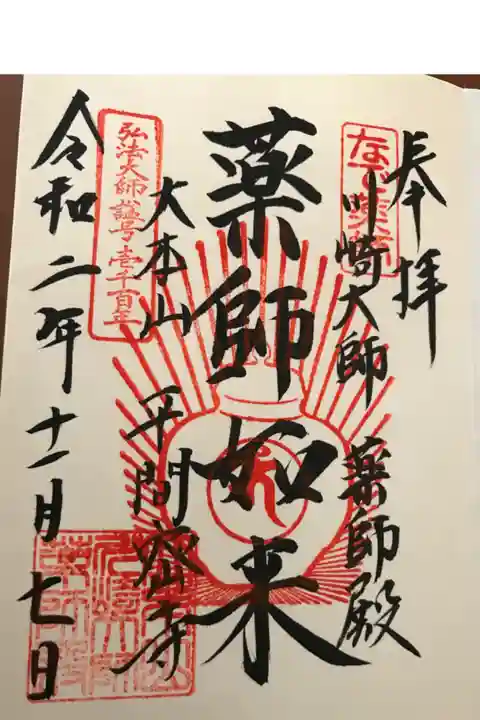 奉拝
なで薬師
川崎大師　薬師殿
薬師如来
大本山　平間密寺
弘法大師諡号壱千百年
令和二年十一月七日